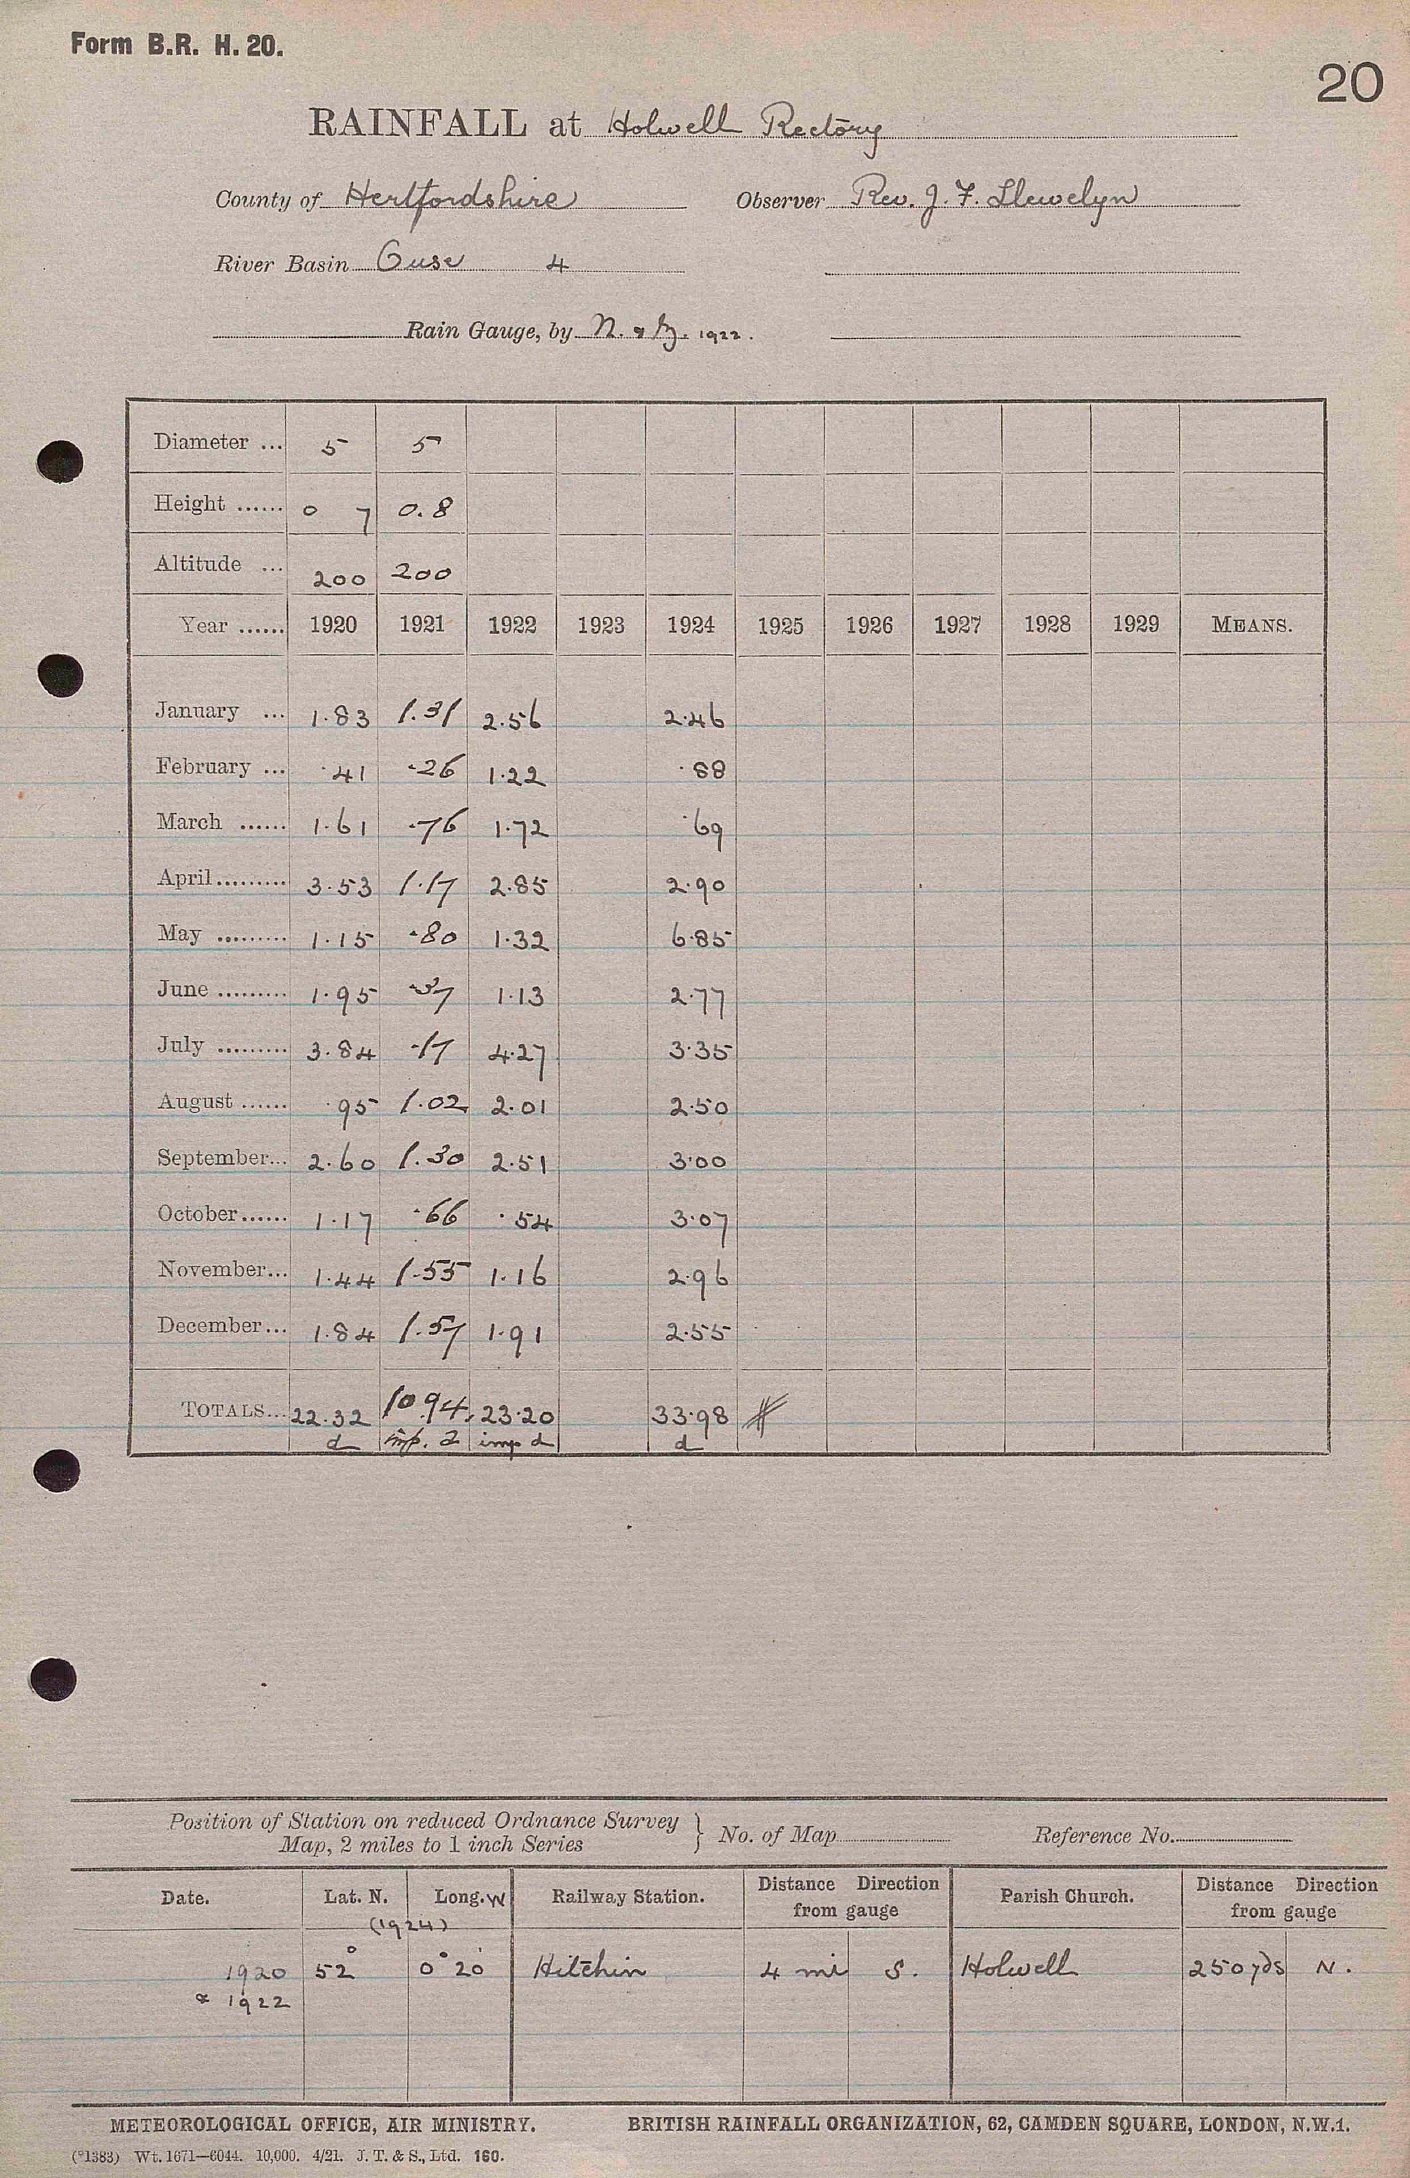 Form B.R. H. 20.
20
RAINFALL at Holwell Rectory
County of Hertfordshire Observer Rev. J. F. Llewelyn
River Basin Ouse 4
Rain Gauge, by N. & Z. 1922.
Diameter ... 5 5
Height ...... 0 7 0.8
Altitude ... 200 200
Year ...... 1920 1921 1922 1923 1924 1925 1926 1927 1928 1929 MEANS.
January ... 1.83 1.31 2.56 2.46
February ... .41 .26 1.22 .88
March ...... 1.61 .76 1.72 .69
April......... 3.53 1.17 2.85 2.90
May ......... 1.15 .80 1.32 6.85
June ......... 1.95 .37 1.13 2.77
July ......... 3.84 .17 4.27 3.35
August ...... .95 1.02 2.01 2.50
September... 2.60 1.30 2.51 3.00
October...... 1.17 .66 .54 3.07
November... 1.44 1.55 1.16 2.96
December... 1.84 1.57 1.91 2.55
TOTALS... 22.32 10.94 23.20 33.98
d imp. d imp d d
Position of Station on reduced Ordnance Survey
Map, 2 miles to 1 inch Series } No. of Map Reference No.
Date. Lat. N. Long. W Railway Station. Distance Direction from gauge Parish Church. Distance Direction from gauge
(1924)
1920 52° 0° 20' Hitchin 4 mi S. Holwell 250 yds N.
& 1922
METEOROLOGICAL OFFICE, AIR MINISTRY. BRITISH RAINFALL ORGANIZATION, 62, CAMDEN SQUARE, LONDON, N.W.1.
(*1383) Wt. 1671—6044. 10,000. 4/21. J. T. & S., Ltd. 160.